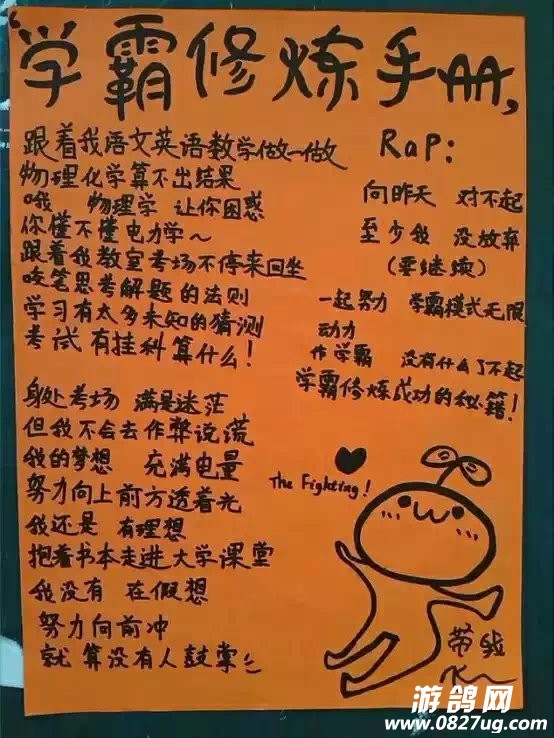 学霸修炼手AA,
跟着我语文英语数学做一做
物理化学算不出结果
哦 物理学 让你困惑
你懂不懂电力学~
跟着我教室考场不停来回坐
咬笔思考解题的法则
学习有太多未知的猜测
考试有挂科算什么！
身处考场 满是迷茫
但我不会去作弊说谎
我的梦想 充满电量
努力向上前方透着光
我还是 有理想
抱着书本走进大学课堂
我没有 在假想
努力向前冲
就算没有人鼓掌
RaP:
向昨天 对不起
至少我 没放弃
(要继续)
一起努力 学霸模式无限
动力
作学霸 没有什么了不起
学霸修炼成功的秘籍！
The Fighting!
带我
游鸽网
www.0827ug.com